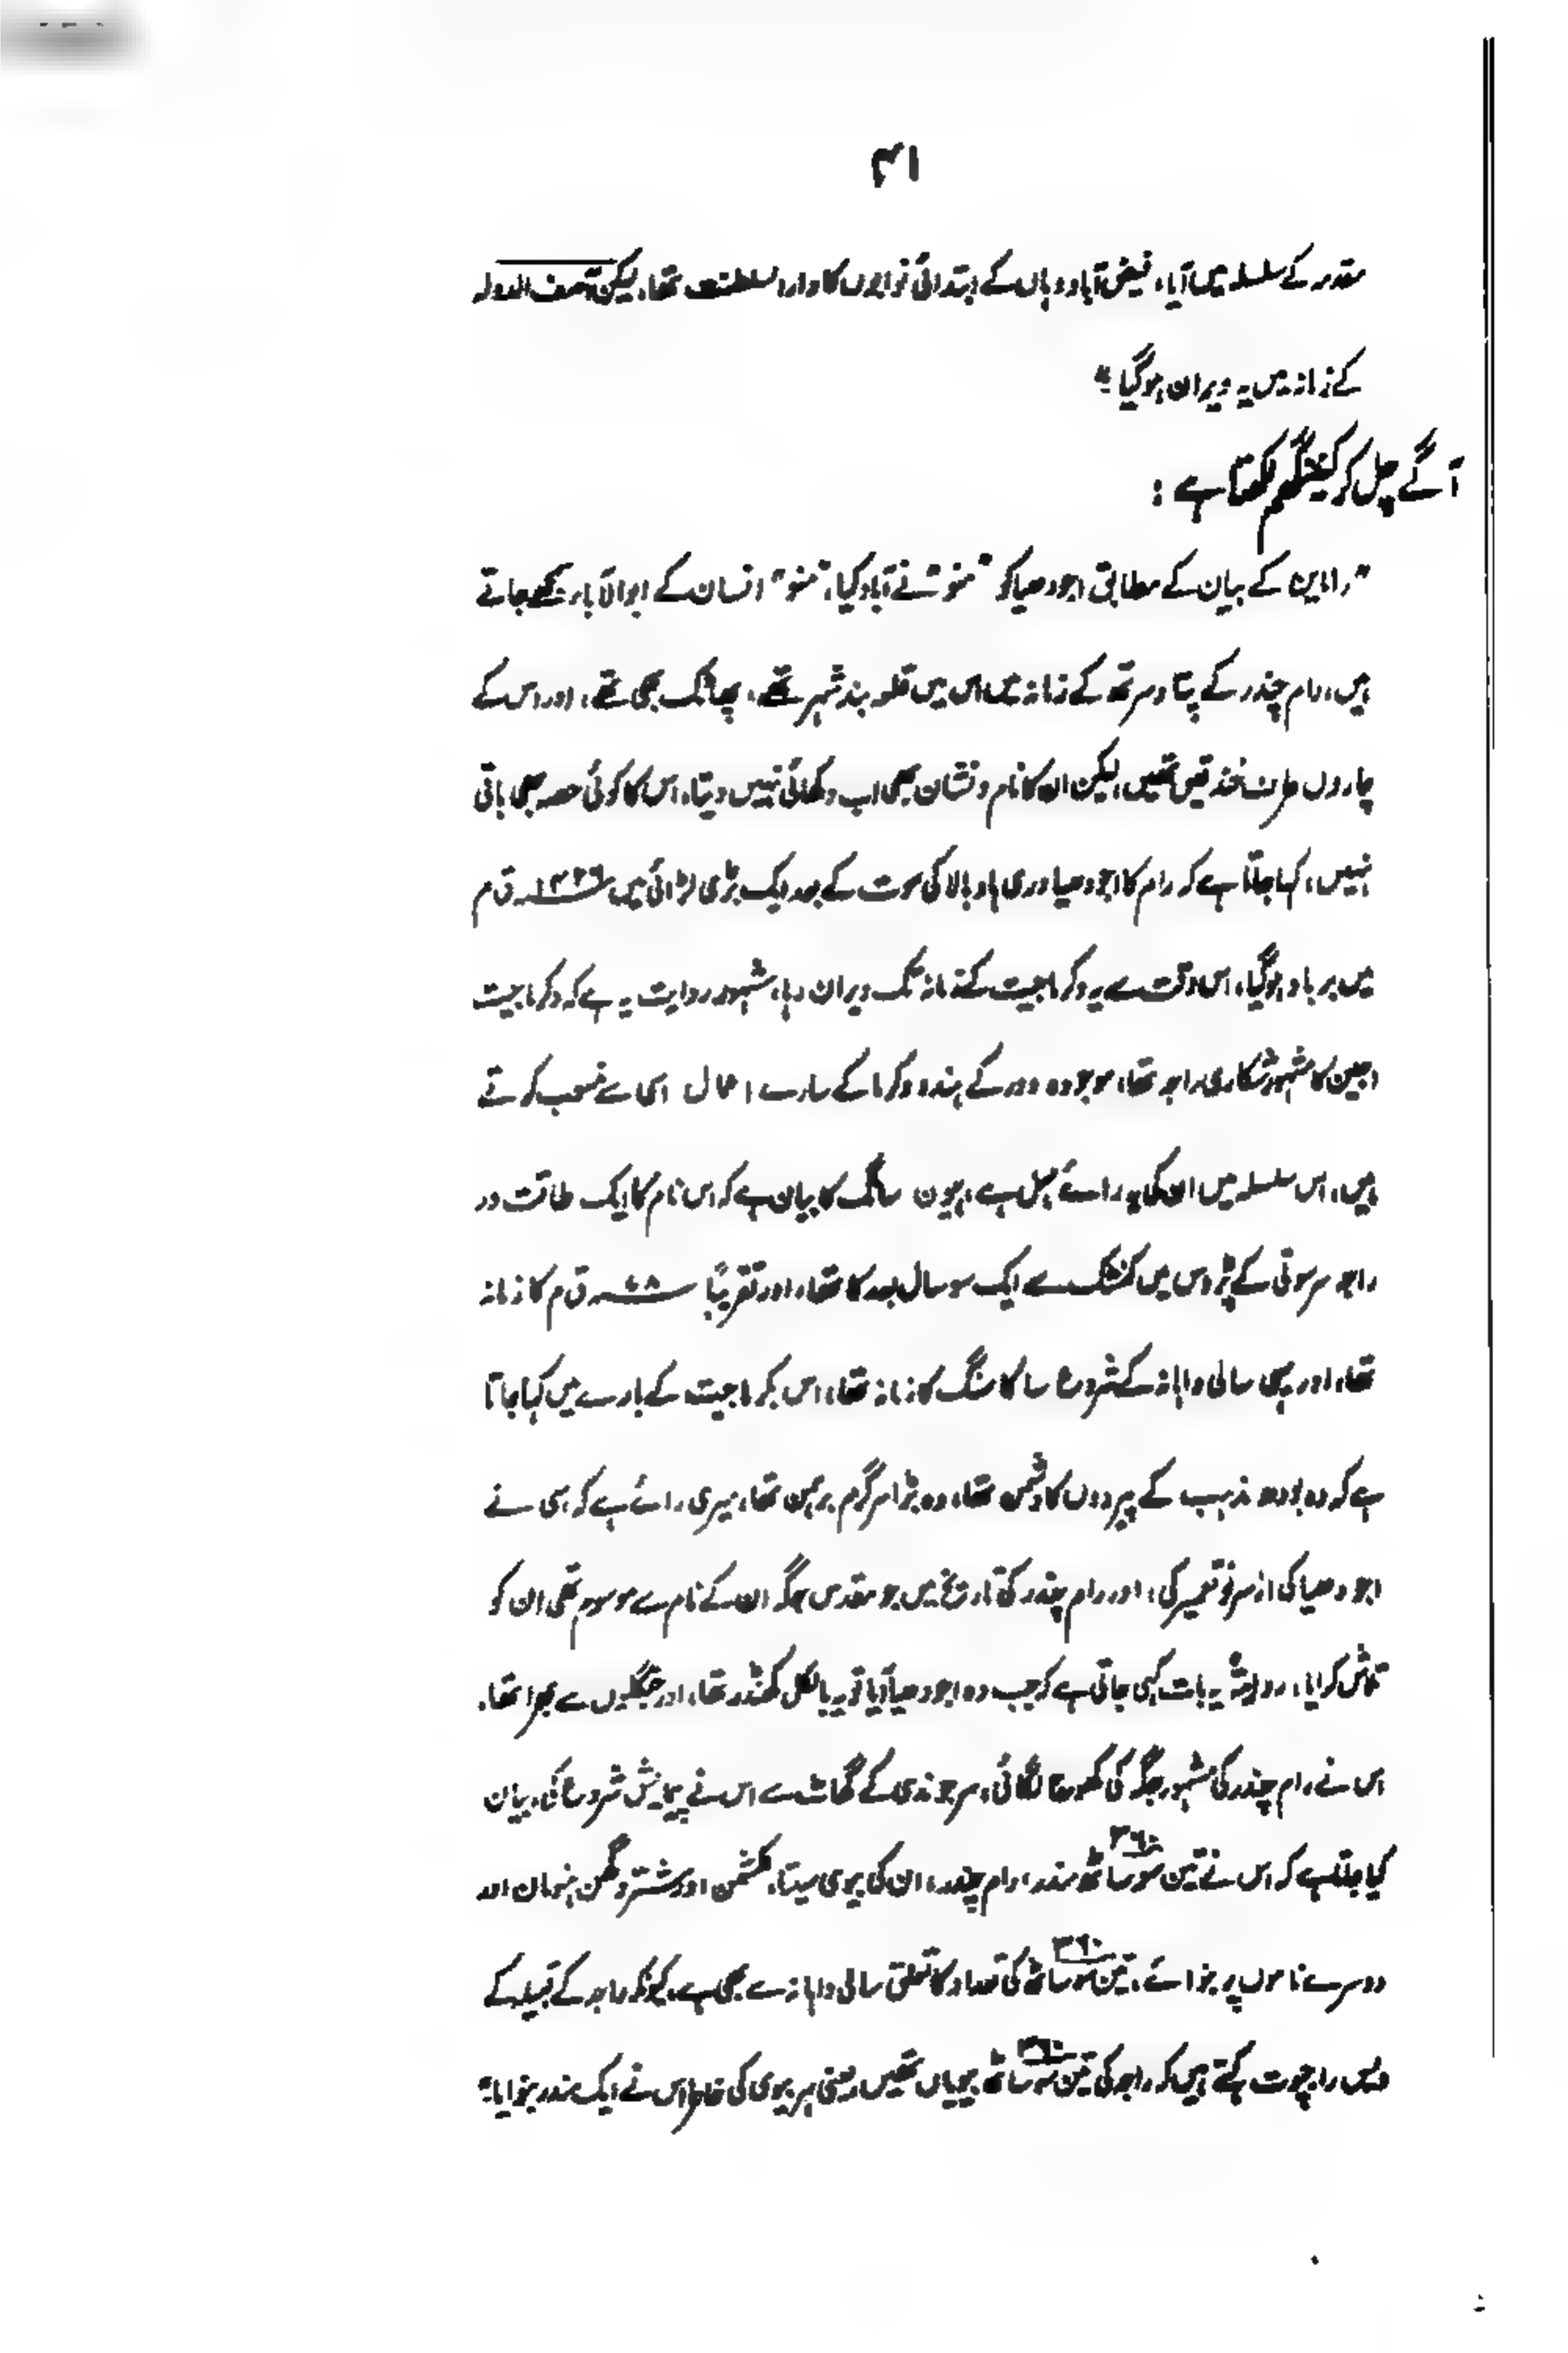 ۴۱
مقدمہ کے سلسلہ میں آیا، فیض آباد وہاں کے ابتدائی نوابوں کا دارالسلطنت تھا، لیکن آصف الدولہ
کے زمانہ میں یہ ویران ہوگیا "
آگے چل کر کنینگھم لکھتا ہے :
" رامائن کے بیان کے مطابق اجودھیا کو "منو" نے آباد کیا، "منو" انسان کے ابوالآباء سمجھے جاتے
ہیں، رام چندر کے پتا دسرتھ کے زمانہ میں اس میں قلعہ بند شہر تھے، پھاٹک بھی تھے، اور اس کے
چاروں طرف خندقیں تھیں، لیکن ان کا نام و نشان بھی اب دکھائی نہیں دیتا، اس کا کوئی حصہ بھی باقی
نہیں، کہا جاتا ہے کہ رام کا اجودھیا وری ہاد بالا کی موت کے بعد ایک بڑی لڑائی میں ۱۴۲۶ ق م
میں برباد ہوگیا، اس وقت سے یہ وکرماجیت کے زمانہ تک ویران رہا، مشہور روایت یہ ہے کہ وکرماجیت
اجین کا مشہور شکاری راجہ تھا، موجودہ دور کے ہندو وکرما کے سارے اعمال اسی سے منسوب کرتے
ہیں، اس سلسلہ میں ان کی یہ رائے مہمل ہے، ہیون سانگ کا بیان ہے کہ اس نام کا ایک طاقت ور
راجہ سرسوتی کے پڑوس میں کنشک سے ایک سو سال بعد کا تھا، اور تقریباً ۷۸ ق م کا زمانہ
تھا، اور یہی سالی واہانہ کے شروع ساکا سنگ کا زمانہ تھا، اس بکرماجیت کے بارے میں کہا جاتا
ہے کہ وہ بودھ مذہب کے پیرووں کا دشمن تھا، وہ بڑا سرگرم برہمن تھا، میری رائے ہے کہ اسی نے
اجودھیا کی از سر نو تعمیر کی، اور رام چندر کی تاریخ میں جو مقدس جگہ ان کے نام سے موسوم تھی ان کو
تلاش کرایا، روایتہً یہ بات کہی جاتی ہے کہ جب وہ اجودھیا آیا تو یہ بالکل کھنڈر تھا، اور جنگلوں سے بھرا تھا،
اس نے رام چندر کی مشہور جگہ کی کھوج لگائی، سرجو ندی کے گھاٹ سے اس نے پیمائش شروع کی، بیان
کیا جاتا ہے کہ اس نے تین سو ساٹھ ۳۶۰ مندر، رام چندر، ان کی بیوی سیتا، لکشمن اور شتروگھن ہنومان اور
دوسرے ناموں پر بنوائے، تین سو ساٹھ ۳۶۰ کی تعداد کا تعلق سالی واہانہ سے بھی ہے، کیونکہ راجہ کے قبیلہ کے
ویس راجپوت کہتے ہیں کہ راجہ کی تین سو ساٹھ ۳۶۰ بیویاں تھیں، یعنی ہر بیوی کی خاطر اس نے ایک مندر بنوایا۔"